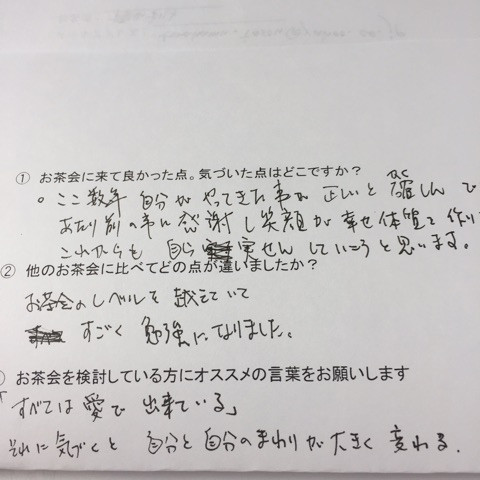 ① お茶会に来て良かった点。気づいた点はどこですか？
。ここ数年 自分がやってきた事が正しいと確しんで
あたり前の事に感謝し笑顔が幸せ体質を作り
これからも 自ら 実せんしていこうと思います。
② 他のお茶会に比べてどの点が違いましたか？
お茶会のレベルを越えていて
すごく勉強になりました。
お茶会を検討している方にオススメの言葉をお願いします
「すべては愛で出来ている」
それに気づくと 自分と自分のまわりが大きく変わる。